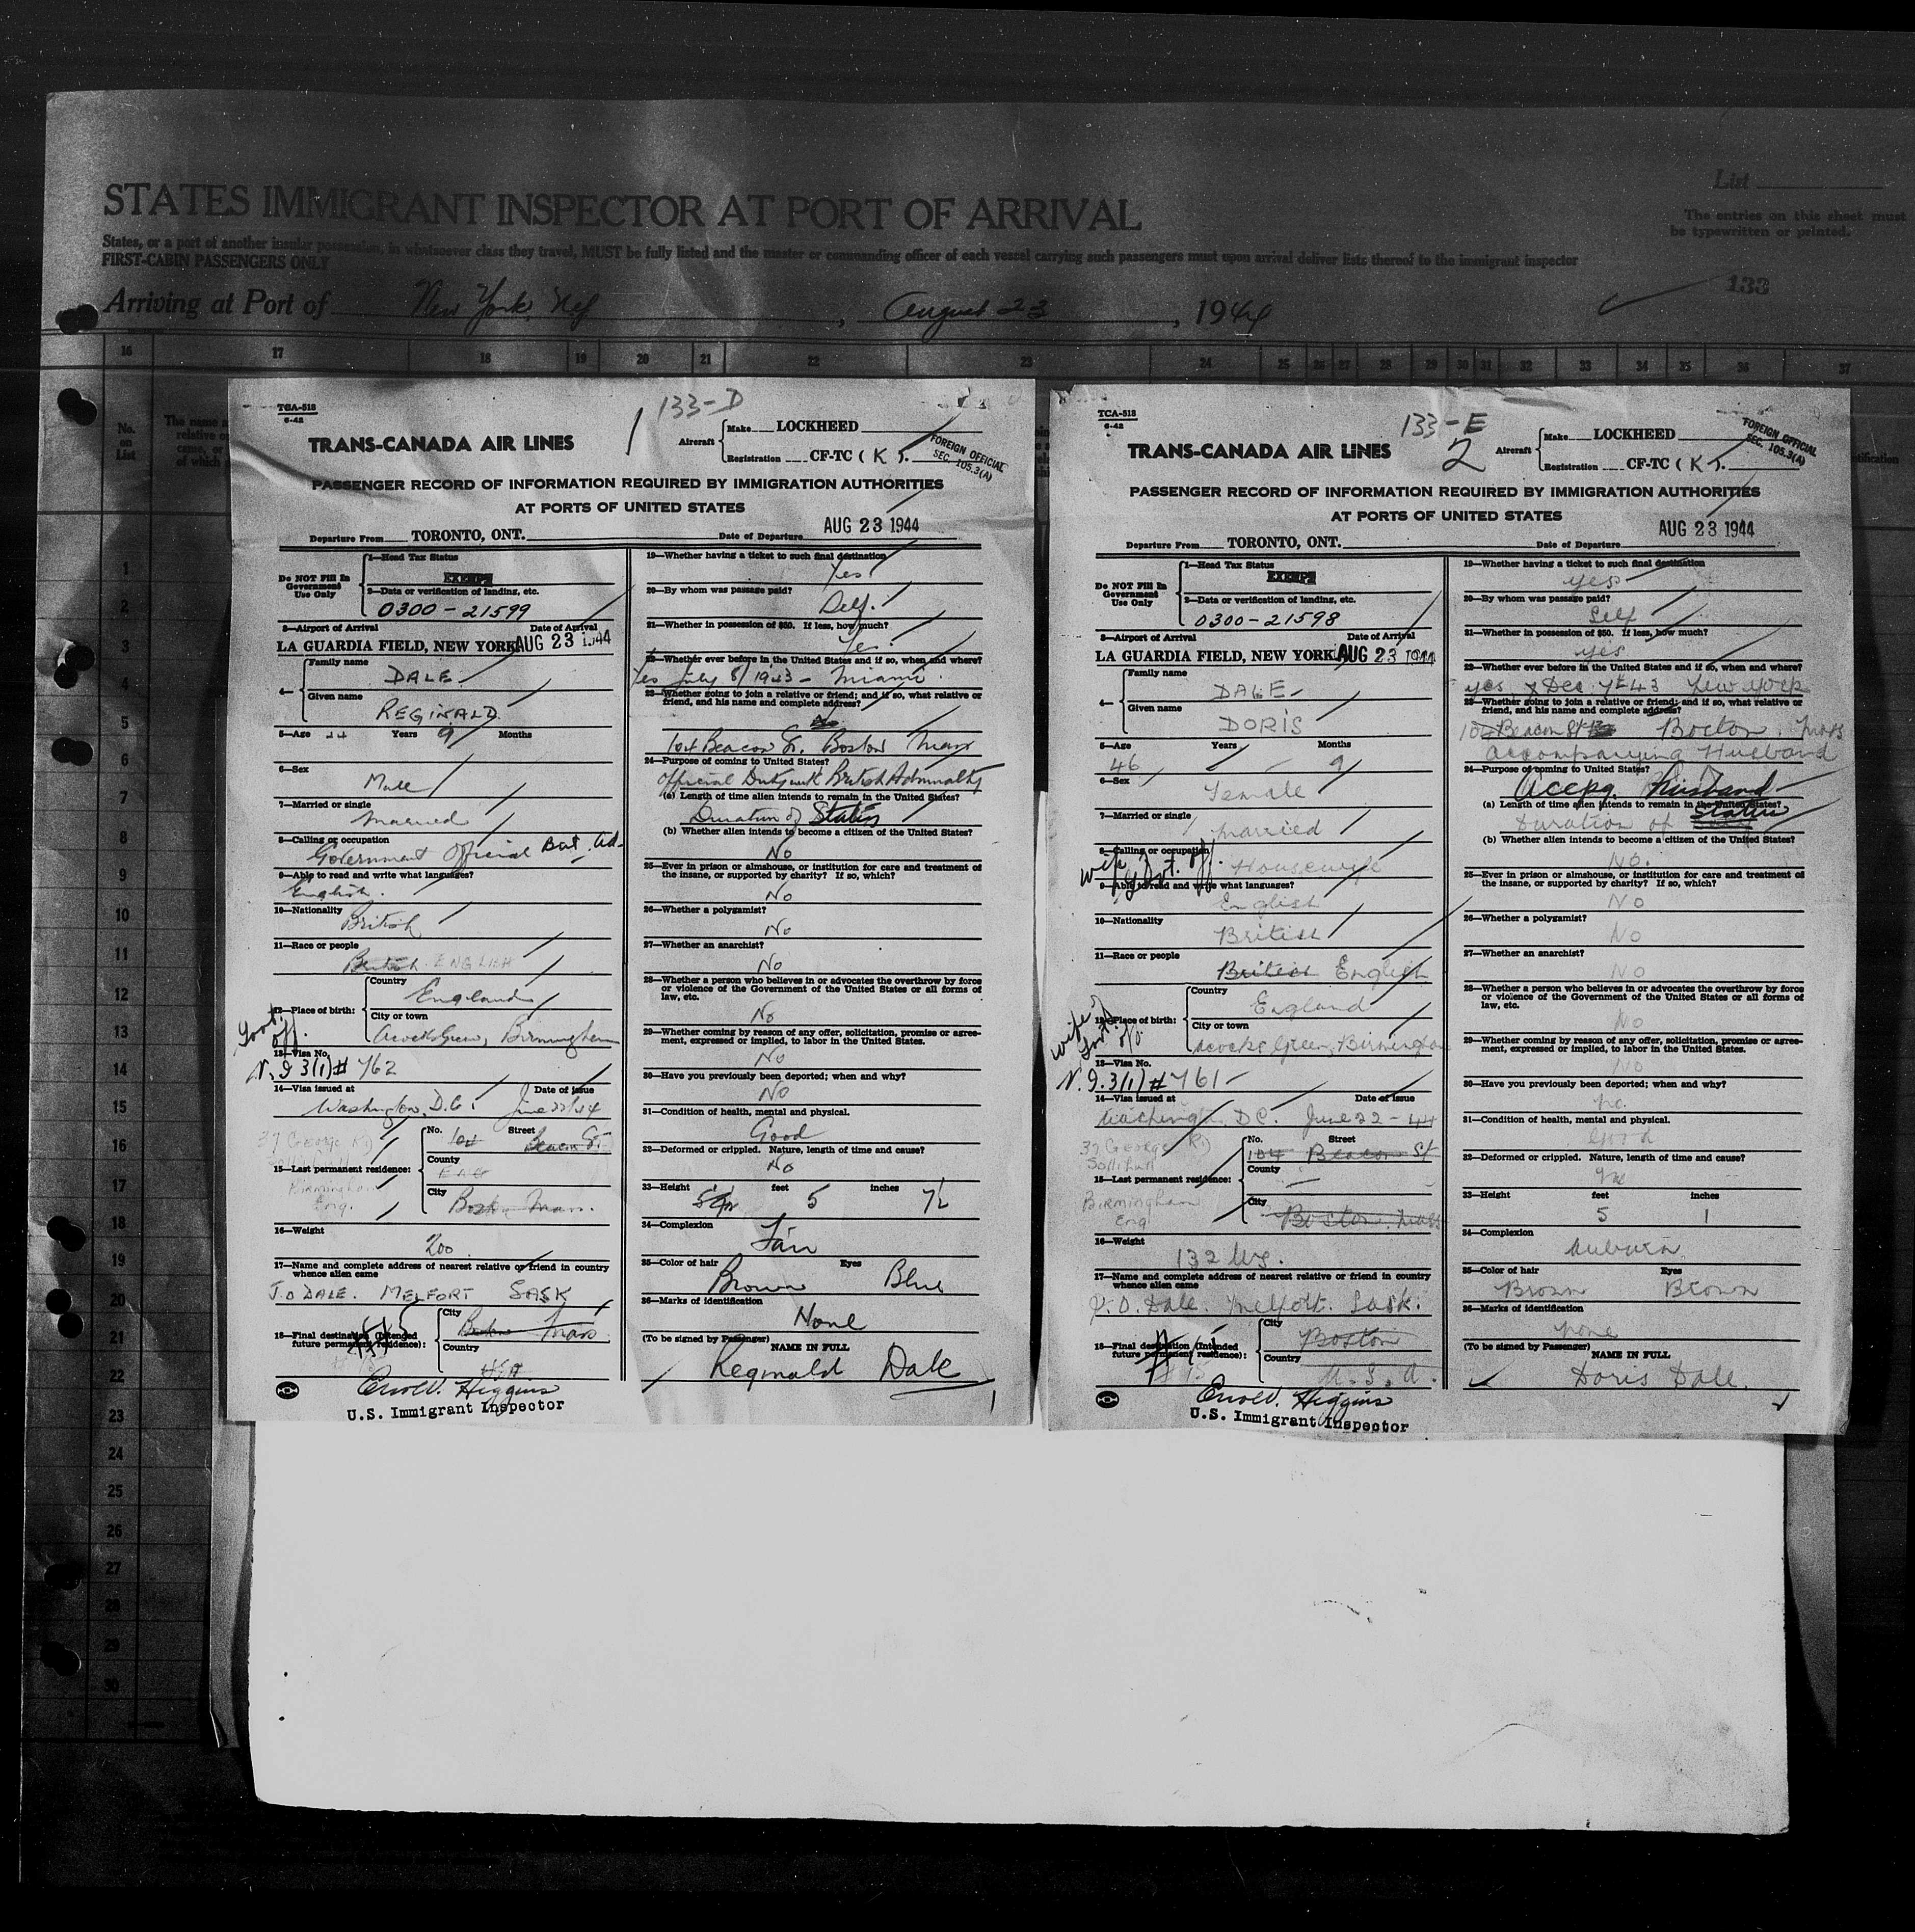 STATES IMMIGRANT INSPECTOR AT PORT OF ARRIVAL
List
The entries on this sheet must
be typewritten or printed.
States, or a port of another insular possession, in whatsoever class they travel, MUST be fully listed and the master or commanding officer of each vessel carrying such passengers must upon arrival deliver lists thereof to the immigrant inspector
FIRST-CABIN PASSENGERS ONLY
133
Arriving at Port of New York, , August 23, 1944
16 17 18 19 20 21 22 23 24 25 26 27 28 29 30 31 32 33 34 35 36 37
No.
on
List
1
2
3
4
5
6
7
8
9
10
11
12
13
14
15
16
17
18
19
20
21
22
23
24
25
26
27
28
29
30
TCA-518
6-42
133-D
1
TRANS-CANADA AIR LINES
Aircraft
Make LOCKHEED
Registration CF-TC ( K ).
FOREIGN OFFICIAL
SEC. 105.3(A)
PASSENGER RECORD OF INFORMATION REQUIRED BY IMMIGRATION AUTHORITIES
AT PORTS OF UNITED STATES
Departure From TORONTO, ONT. Date of Departure AUG 23 1944
Do NOT Fill In
Government
Use Only
1—Head Tax Status
EXEMPT
2—Data or verification of landing, etc.
0300-21599
3—Airport of Arrival Date of Arrival
LA GUARDIA FIELD, NEW YORK AUG 23 1944
4—
Family name
DALE
Given name
REGINALD
5—Age 44 Years 9 Months
6—Sex
Male
7—Married or single
Married
8—Calling or occupation
Government Official Brit. Ad-
9—Able to read and write what languages?
English.
10—Nationality
British
11—Race or people
British ENGLISH
12—Place of birth:
Country
England
City or town
Acocks Green, Birmingham
Govt.
off.
13—Visa No.
N.I 3(1) # 762
14—Visa issued at Date of issue
Washington, D.C. June 22/44
37 George Rd
Birmingham
Eng.
15—Last permanent residence:
No. 104 Street Beacon St.
County
ENG
City
Boston Mass.
16—Weight
200
17—Name and complete address of nearest relative or friend in country
whence alien came
J.O DALE. MELFORT SASK
18—Final destination (Intended
future permanent residence):
City
Boston Mass
Country
USA
Errol V. Higgins
U.S. Immigrant Inspector
19—Whether having a ticket to such final destination
Yes.
20—By whom was passage paid?
Self.
21—Whether in possession of $50. If less, how much?
Yes.
22—Whether ever before in the United States and if so, when and where?
Yes July 8/1943 - Miami.
23—Whether going to join a relative or friend; and if so, what relative or
friend, and his name and complete address?
No
104 Beacon St. Boston Mass
24—Purpose of coming to United States?
Official Duty with British Admiralty
(a) Length of time alien intends to remain in the United States?
Duration of Status
(b) Whether alien intends to become a citizen of the United States?
No
25—Ever in prison or almshouse, or institution for care and treatment of
the insane, or supported by charity? If so, which?
No
26—Whether a polygamist?
No
27—Whether an anarchist?
No
28—Whether a person who believes in or advocates the overthrow by force
or violence of the Government of the United States or all forms of
law, etc.
No
29—Whether coming by reason of any offer, solicitation, promise or agree-
ment, expressed or implied, to labor in the United States.
No
30—Have you previously been deported; when and why?
No
31—Condition of health, mental and physical.
Good
32—Deformed or crippled. Nature, length of time and cause?
No
33—Height feet 5 inches 7½
34—Complexion
Fair
35—Color of hair Brown Eyes Blue
36—Marks of identification
None
(To be signed by Passenger) NAME IN FULL
Reginald Dale
1
TCA-518
6-42
133-E
2
TRANS-CANADA AIR LINES
Aircraft
Make LOCKHEED
Registration CF-TC ( K ).
FOREIGN OFFICIAL
SEC. 105.3(A)
PASSENGER RECORD OF INFORMATION REQUIRED BY IMMIGRATION AUTHORITIES
AT PORTS OF UNITED STATES
Departure From TORONTO, ONT. Date of Departure AUG 23 1944
Do NOT Fill In
Government
Use Only
1—Head Tax Status
EXEMPT
2—Data or verification of landing, etc.
0300-21598
3—Airport of Arrival Date of Arrival
LA GUARDIA FIELD, NEW YORK AUG 23 1944
4—
Family name
DALE
Given name
DORIS
5—Age 46 Years Months 9
6—Sex
Female
7—Married or single
Married
8—Calling or occupation
Housewife
wife govt. off.
9—Able to read and write what languages?
English
10—Nationality
British
11—Race or people
British English
12—Place of birth:
Country
England
City or town
Acocks Green, Birmingham
wife
Govt.
off.
13—Visa No.
N.I. 3(1) # 761
14—Visa issued at Date of issue
Washington DC. June 22 - 44
37 George Rd
Solihull
Birmingham
Eng
15—Last permanent residence:
No. 104 Street Beacon St
County
City
Boston, Mass
16—Weight
132 lbs.
17—Name and complete address of nearest relative or friend in country
whence alien came
J. O. Dale. Melfort. Sask.
18—Final destination (Intended
future permanent residence):
City
Boston
Country
U.S.A.
Errol V. Higgins
U.S. Immigrant Inspector
19—Whether having a ticket to such final destination
yes
20—By whom was passage paid?
Self
21—Whether in possession of $50. If less, how much?
yes
22—Whether ever before in the United States and if so, when and where?
yes Dec 7th 43 New York
23—Whether going to join a relative or friend; and if so, what relative or
friend, and his name and complete address?
104 Beacon St Boston. Mass
Accompanying Husband
24—Purpose of coming to United States?
Accpg. Husband
(a) Length of time alien intends to remain in the United States?
Duration of Status
(b) Whether alien intends to become a citizen of the United States?
No.
25—Ever in prison or almshouse, or institution for care and treatment of
the insane, or supported by charity? If so, which?
No
26—Whether a polygamist?
No
27—Whether an anarchist?
No
28—Whether a person who believes in or advocates the overthrow by force
or violence of the Government of the United States or all forms of
law, etc.
No
29—Whether coming by reason of any offer, solicitation, promise or agree-
ment, expressed or implied, to labor in the United States.
No
30—Have you previously been deported; when and why?
No.
31—Condition of health, mental and physical.
Good
32—Deformed or crippled. Nature, length of time and cause?
No
33—Height feet 5 inches 1
34—Complexion
Auburn
35—Color of hair Brown Eyes Brown
36—Marks of identification
None
(To be signed by Passenger) NAME IN FULL
Doris Dale.